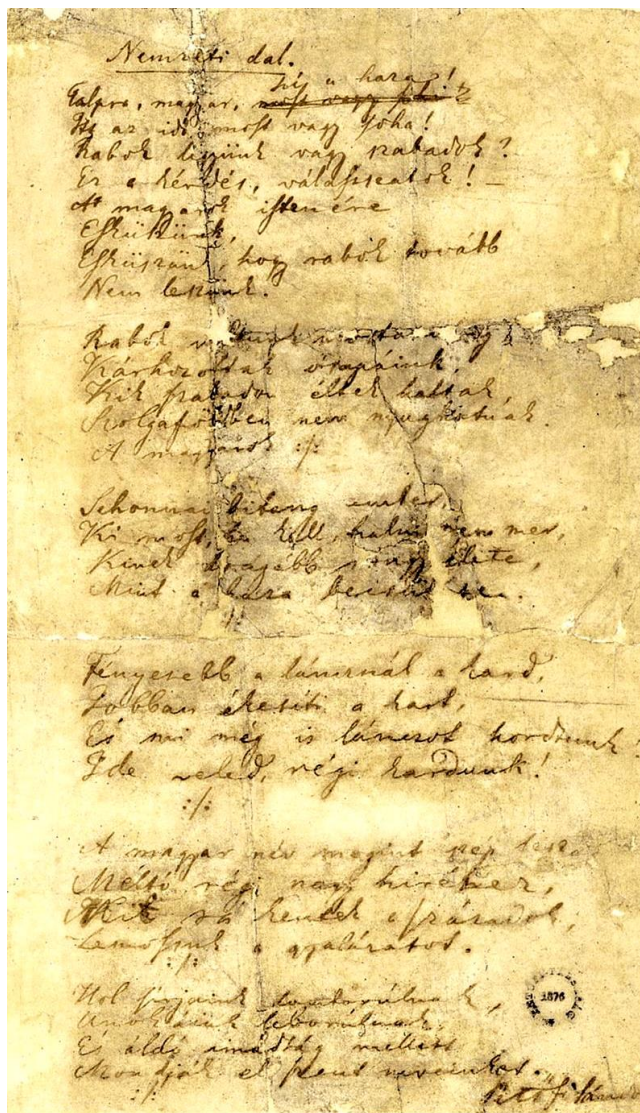 Nemzeti dal.
hí a haza!
Talpra, magyar, most vagy soha!
Itt az idő, most vagy soha!
Rabok legyünk vagy szabadok?
Ez a kérdés, válasszatok! –
A magyarok istenére
Esküszünk,
Esküszünk, hogy rabok tovább
Nem leszünk.
Rabok voltunk mostanáig
Kárhozottak ősapáink,
Kik szabadon éltek haltak,
Szolgaföldben nem nyughatnak.
A magyarok :/:
Sehonnai bitang ember,
Ki most, ha kell, halni nem mer,
Kinek drágább rongy élete,
Mint a haza becsülete.
:/:
Fényesebb a láncznál a kard,
Jobban ékesíti a kart,
És mi még is lánczot hordtunk!
Ide veled, régi kardunk!
:/:
A magyar név megint szép lesz,
Méltó régi nagy hiréhez,
Mit rá kentek a századok,
Lemossuk a gyalázatot.
:/:
Hol sírjaink domborulnak,
Unokáink leborulnak,
És áldó imádság mellett
Mondják el szent neveinket.
:/:
Petőfi Sándor
1876